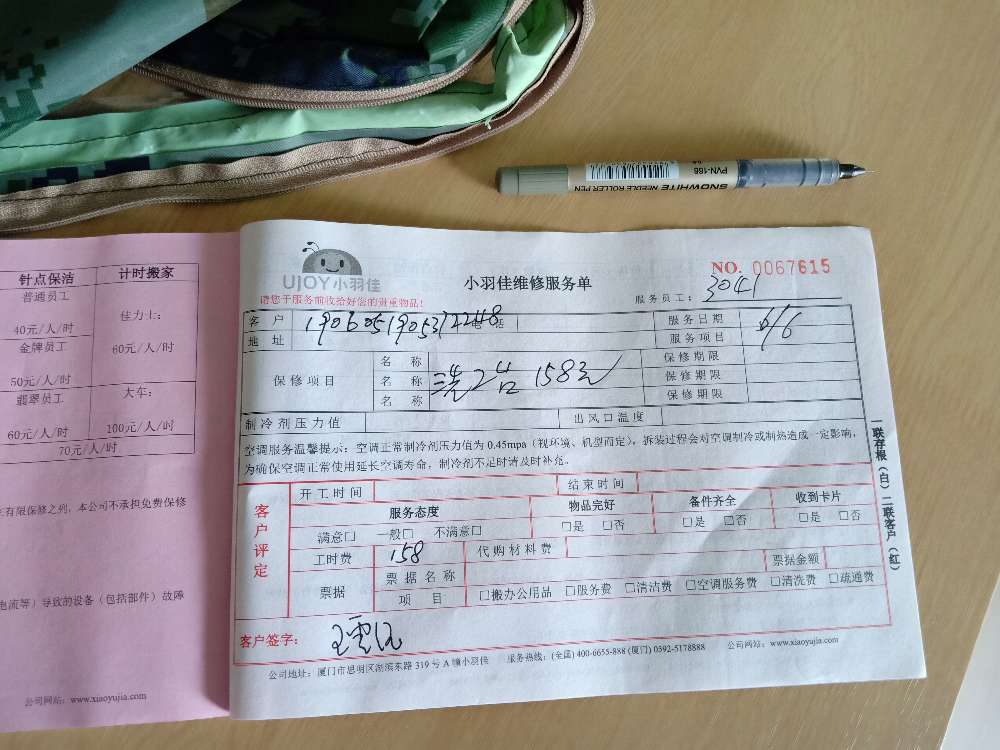 SNOWHITE NEEDLE ROLLER PEN
PVN-166
针点保洁 计时搬家
普通员工
40元/人/时
佳力士:
60元/人/时
金牌员工
50元/人/时
翡翠员工
60元/人/时
大车:
100元/人/时
70元/人/时
主有限保修之列,本公司不承担免费保修
电流等)导致的设备(包括部件)故障
公司网站: www.xiaoyujia.com
UJOY小羽佳
请您于服务前收给好您的贵重物品!
小羽佳维修服务单
NO. 0067615
服务员工: 3041
客户 19060519053722448 电话
地址
服务日期 6/6
服务项目
保修项目
名称 保修期限
名称 洗2台 158元 保修期限
名称 保修期限
制冷剂压力值 出风口温度
空调服务温馨提示: 空调正常制冷剂压力值为0.45mpa(视环境、机型而定),拆装过程会对空调制冷或制热造成一定影响,
为确保空调正常使用延长空调寿命,制冷剂不足时请及时补充。
客户评定
开工时间 结束时间
服务态度 物品完好 备件齐全 收到卡片
满意□ 一般□ 不满意□ □是 □否 □是 □否 □是 □否
工时费 158 代购材料费
票据 票据名称 票据金额
项目 □搬办公用品 □服务费 □清洁费 □空调服务费 □清洗费 □疏通费
客户签字:
公司地址: 厦门市思明区湖滨东路319号A幢小羽佳 服务热线: (全国) 400-6655-888 (厦门) 0592-5178888 公司网站: www.xiaoyujia.com
一联存根(白)二联客户(红)